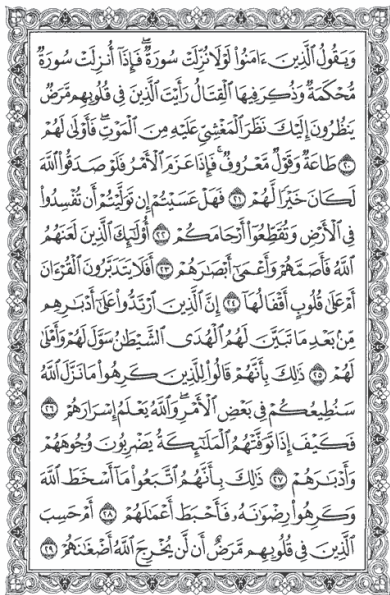 وَيَقُولُ ٱلَّذِينَ ءَامَنُوا۟ لَوْلَا نُزِّلَتْ سُورَةٌ ۖ فَإِذَآ أُنزِلَتْ سُورَةٌ
مُّحْكَمَةٌ وَذُكِرَ فِيهَا ٱلْقِتَالُ ۙ رَأَيْتَ ٱلَّذِينَ فِى قُلُوبِهِم مَّرَضٌ
يَنظُرُونَ إِلَيْكَ نَظَرَ ٱلْمَغْشِىِّ عَلَيْهِ مِنَ ٱلْمَوْتِ ۖ فَأَوْلَىٰ لَهُمْ
٢٠ طَاعَةٌ وَقَوْلٌ مَّعْرُوفٌ ۚ فَإِذَا عَزَمَ ٱلْأَمْرُ فَلَوْ صَدَقُوا۟ ٱللَّهَ
لَكَانَ خَيْرًا لَّهُمْ ٢١ فَهَلْ عَسَيْتُمْ إِن تَوَلَّيْتُمْ أَن تُفْسِدُوا۟
فِى ٱلْأَرْضِ وَتُقَطِّعُوٓا۟ أَرْحَامَكُمْ ٢٢ أُو۟لَـٰٓئِكَ ٱلَّذِينَ لَعَنَهُمُ
ٱللَّهُ فَأَصَمَّهُمْ وَأَعْمَىٰٓ أَبْصَـٰرَهُمْ ٢٣ أَفَلَا يَتَدَبَّرُونَ ٱلْقُرْءَانَ
أَمْ عَلَىٰ قُلُوبٍ أَقْفَالُهَآ ٢٤ إِنَّ ٱلَّذِينَ ٱرْتَدُّوا۟ عَلَىٰٓ أَدْبَـٰرِهِم
مِّنۢ بَعْدِ مَا تَبَيَّنَ لَهُمُ ٱلْهُدَى ۙ ٱلشَّيْطَـٰنُ سَوَّلَ لَهُمْ وَأَمْلَىٰ
لَهُمْ ٢٥ ذَٰلِكَ بِأَنَّهُمْ قَالُوا۟ لِلَّذِينَ كَرِهُوا۟ مَا نَزَّلَ ٱللَّهُ
سَنُطِيعُكُمْ فِى بَعْضِ ٱلْأَمْرِ ۖ وَٱللَّهُ يَعْلَمُ إِسْرَارَهُمْ ٢٦
فَكَيْفَ إِذَا تَوَفَّتْهُمُ ٱلْمَلَـٰٓئِكَةُ يَضْرِبُونَ وُجُوهَهُمْ
وَأَدْبَـٰرَهُمْ ٢٧ ذَٰلِكَ بِأَنَّهُمُ ٱتَّبَعُوا۟ مَآ أَسْخَطَ ٱللَّهَ
وَكَرِهُوا۟ رِضْوَٰنَهُۥ فَأَحْبَطَ أَعْمَـٰلَهُمْ ٢٨ أَمْ حَسِبَ
ٱلَّذِينَ فِى قُلُوبِهِم مَّرَضٌ أَن لَّن يُخْرِجَ ٱللَّهُ أَضْغَـٰنَهُمْ ٢٩